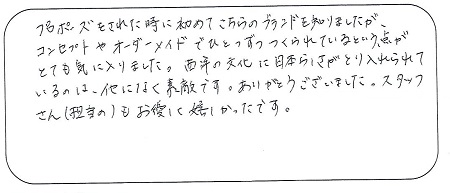 プロポーズをされた時に初めてこちらのブランドを知りましたが、
コンセプトやオーダーメイドでひとつずつつくられているという点が
とても気に入りました。西洋の文化に日本らしさがとり入れられて
いるのは、他になく素敵です。ありがとうございました。スタッフ
さん(担当の)もお優しく嬉しかったです。